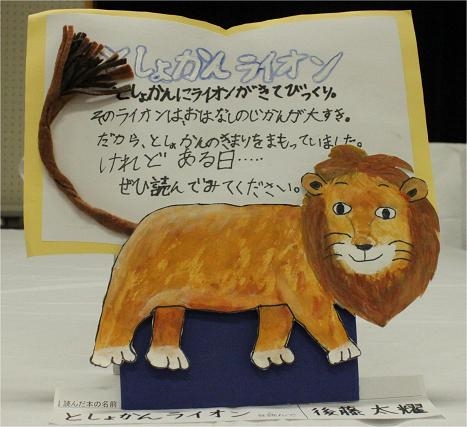 としょかんライオン
としょかんにライオンがきてびっくり。
そのライオンは、おはなしのじかんが大すき。
だから、としょかんのきまりをまもっていました。
けれど ある日……
ぜひ読んでみてください。
読んだ本の名前
としょかんライオン
を読んで
後藤 太耀